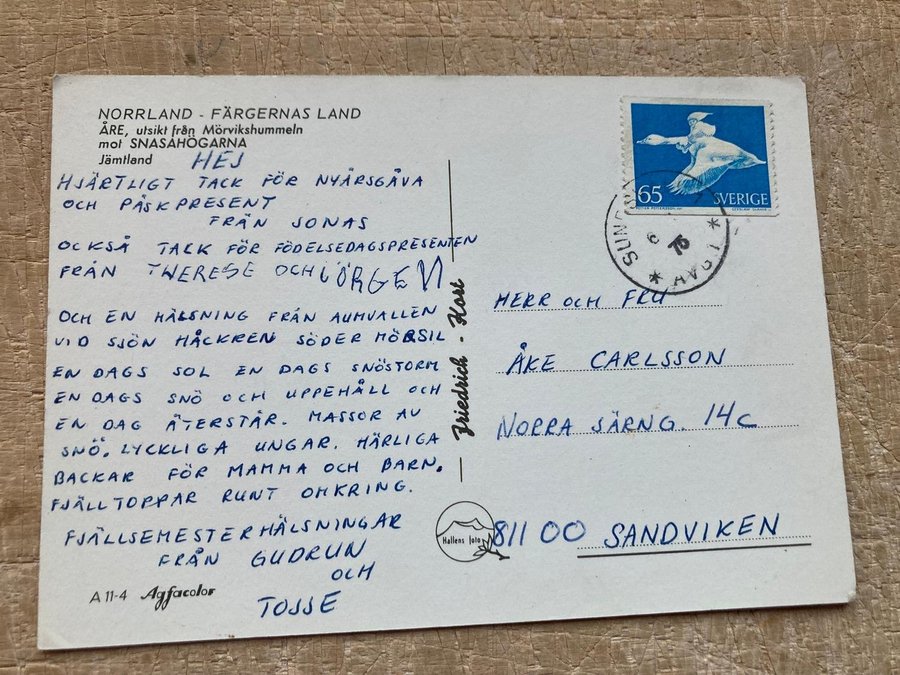 NORRLAND - FÄRGERNAS LAND
ÅRE, utsikt från Mörvikshummeln
mot SNASAHÖGARNA
Jämtland
HEJ
HJÄRTLIGT TACK FÖR NYÅRSGÅVA
OCH PÅSKPRESENT
FRÅN JONAS
OCKSÅ TACK FÖR FÖDELSEDAGSPRESENTEN
FRÅN THERESE OCH JÖRGEN
OCH EN HÄLSNING FRÅN AUMVALLEN
VID SJÖN HÅCKREN SÖDER MÖRSIL
EN DAGS SOL EN DAGS SNÖSTORM
EN DAGS SNÖ OCH UPPEHÅLL OCH
EN DAG ÅTERSTÅR. MASSOR AV
SNÖ. LYCKLIGA UNGAR. HÄRLIGA
BACKAR FÖR MAMMA OCH BARN.
FJÄLLTOPPAR RUNT OMKRING.
FJÄLLSEMESTERHÄLSNINGAR
FRÅN GUDRUN
OCH
TOSSE
A 11-4 Agfacolor
Friedrich - Kort
Hallens foto
65 SVERIGE
SUND
AVG.1
HERR OCH FRU
ÅKE CARLSSON
NORRA SÄRNG. 14C
811 00 SANDVIKEN